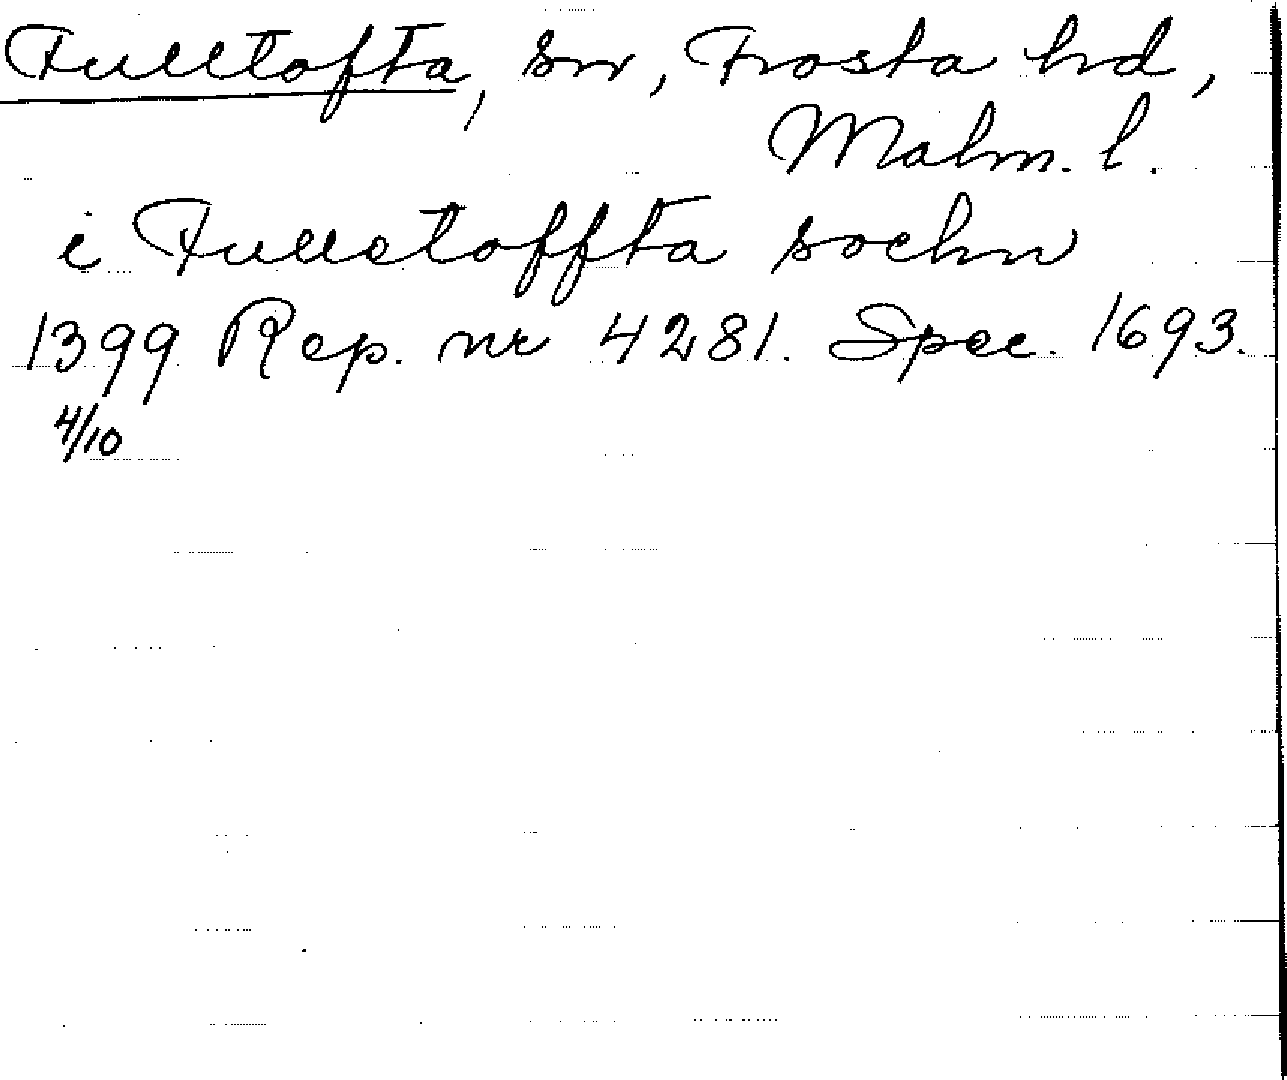 Fulltofta, sn, Frosta hd,
Malm. l.
i Fulletoffta sochn
1399 Rep. nr 4281. Spec. 1693.
4/10